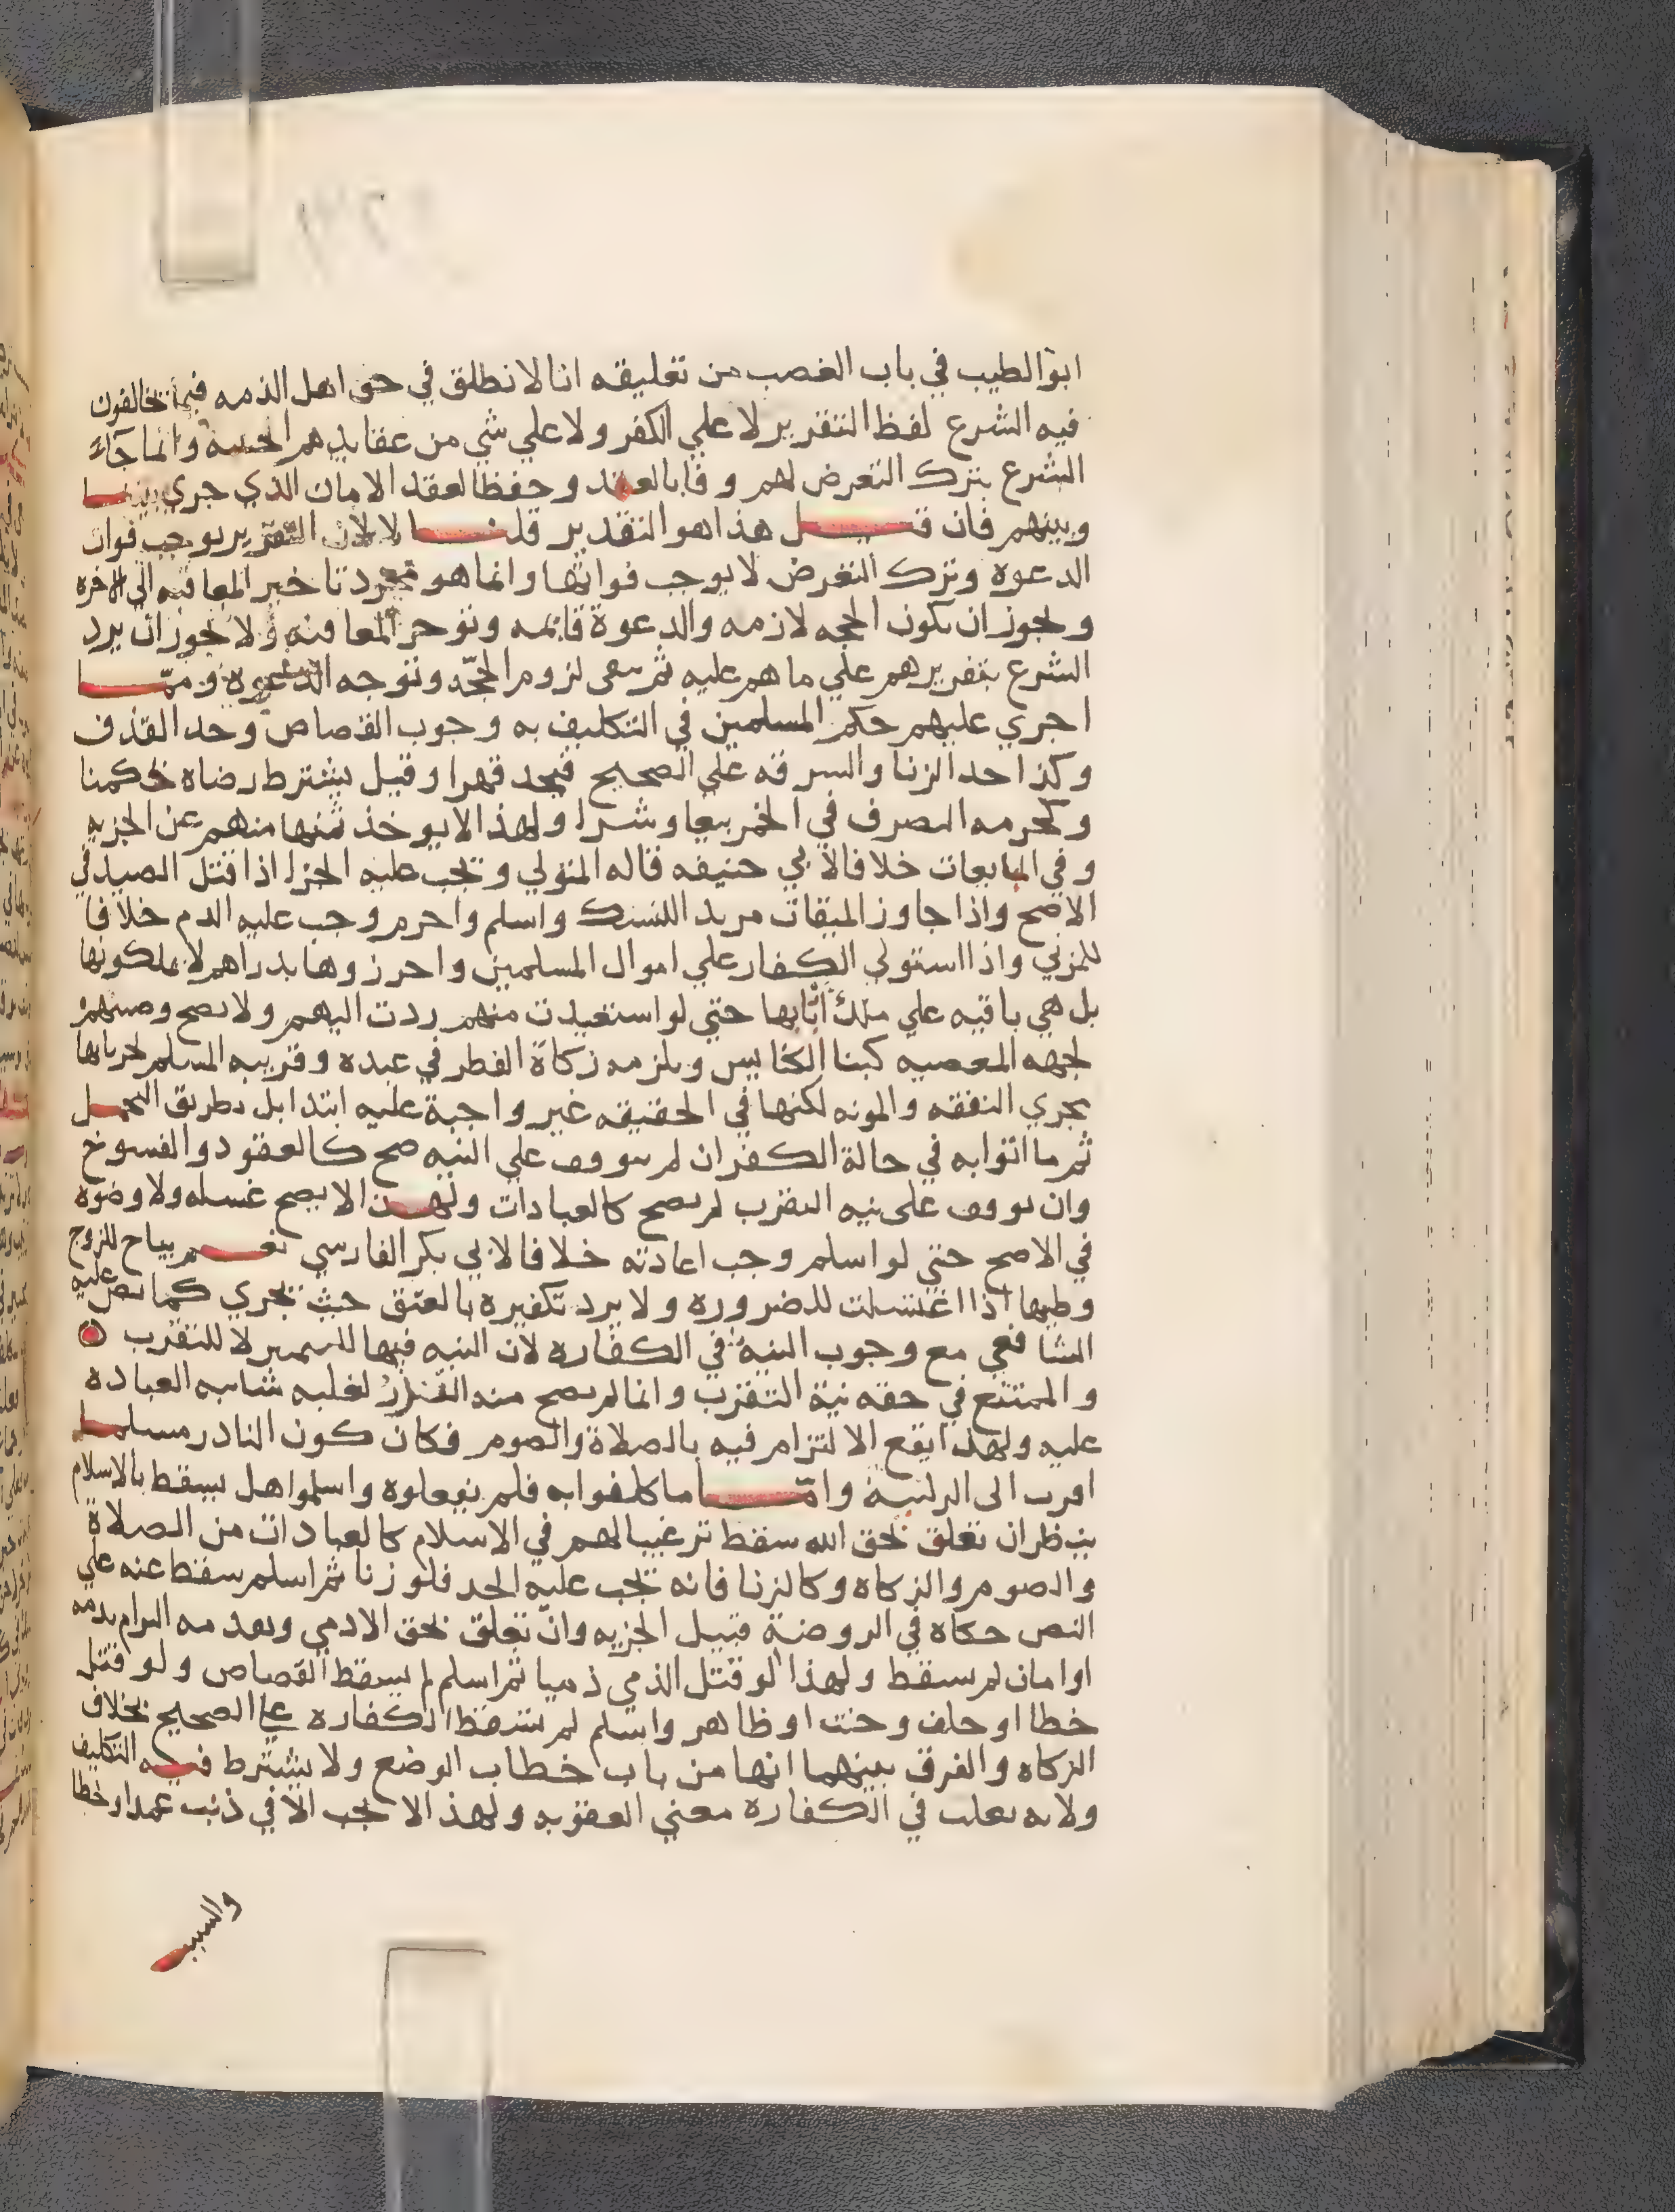 ابو الطيب في باب الغصب من تعليقه انا لا نطلق في حق اهل الذمه فيما يخالفون
فيه الشرع لفظ التقرير لا علي الكفر ولا علي شي من عقايدهم وانما جآء
الشرع بترك التعرض لهم وفا بالعقد وحفظا لعقد الامان الذي جري بيننا
وبينهم فان قيل هذا هو التقدير قلنا لا لان التقرير يوجب فوات
الدعوه وترك التعرض لا يوجب فواتها وانما هو مجرد تاخير المعاقبه الي الاخره
ويجوز ان يكون الحجه لازمه والدعوة قايمه وتوخر المعاقبه ولا يجوز ان يرد
الشرع بتقريرهم علي ما هم عليه ثم يبقى لزوم الحجّه وتوجه الدعوة وممّا
اجري عليهم حكم المسلمين في التكليف به وجوب القصاص وحد القذف
وكذا حد الزنا والسرقه علي الصحيح فيحد قهرا وقيل يشترط رضاه بحكمنا
وكحرمه التصرف في الخمر بيعا وشرا ولهذا لا يوخذ ثمنها منهم عن الجزيه
وفي البابعات خلافا لابي حنيفه قاله المتولي ويجب عليه الجزا اذا قتل الصيد في
الاصح واذا جاوز الميقات مريد اللنسك واسلم واحرم وجب عليه الدم خلافا
للمزني واذا استولي الكفار علي اموال المسلمين واحرزوها بدراهم لا يملكونها
بل هي باقيه علي ملك اربابها حتي لو استعيدت منهم ردت اليهم ولا يصح وصيتهم
لجهه المعصيه كبنا الكنايس ويلزمه زكاة الفطر في عبده وقريبه المسلم لجريانها
مجري النفقه والمونه لكنها في الحقيقه غير واجبة عليه ابتدا بل بطريق التحمل
ثم ما اتوا به في حالة الكفر ان لم يتوقف علي النيه صح كالعقود والفسوخ
وان توقف على نيه التقرب لم يصح كالعبادات ولهذا لا يصح غسله ولا وضوه
في الاصح حتي لو اسلم وجب اعادته خلافا لابي بكر الفارسي نعم يباح للزوج
وطيها اذا اغتسلت للضروره ولا يرد تكفيره بالعتق حيث يجري كما نص عليه
الشافعي مع وجوب النية في الكفاره لان النيه فيها للتمييز لا للتقرب
والممتنع في حقه نية التقرب وانما لم يصح منه النذر لغلبه شايبه العباده
عليه ولهذا يقع الالتزام فيه بالصلاة والصوم فكان كون الناذر مسلما
اقرب الى النية وامّا ما كلفوا به فلم يفعلوه واسلموا هل يسقط بالاسلام
ينظر ان تعلق بحق الله سقط ترغيبا لهم في الاسلام كالعبادات من الصلاة
والصوم والزكاه وكالزنا فانه يجب عليه الحد فلو زنا ثم اسلم سقط عنه علي
النص حكاه في الروضة قبيل الجزيه وان تعلق بحق الادمي وتقدمه التزام بذمه
او امان لم يسقط ولهذا لو قتل الذمي ذميا ثم اسلم لم يسقط القصاص ولو قتل
خطا او حلف وحنث او ظاهر واسلم لم تسقط الكفاره علي الصحيح بخلاف
الزكاه والفرق بينهما انها من باب خطاب الوضع ولا يشترط فيه التكليف
ولانه يغلب في الكفاره معني العقوبه ولهذا لا يجب الا في ذنب عمدا وخطا
والسبب